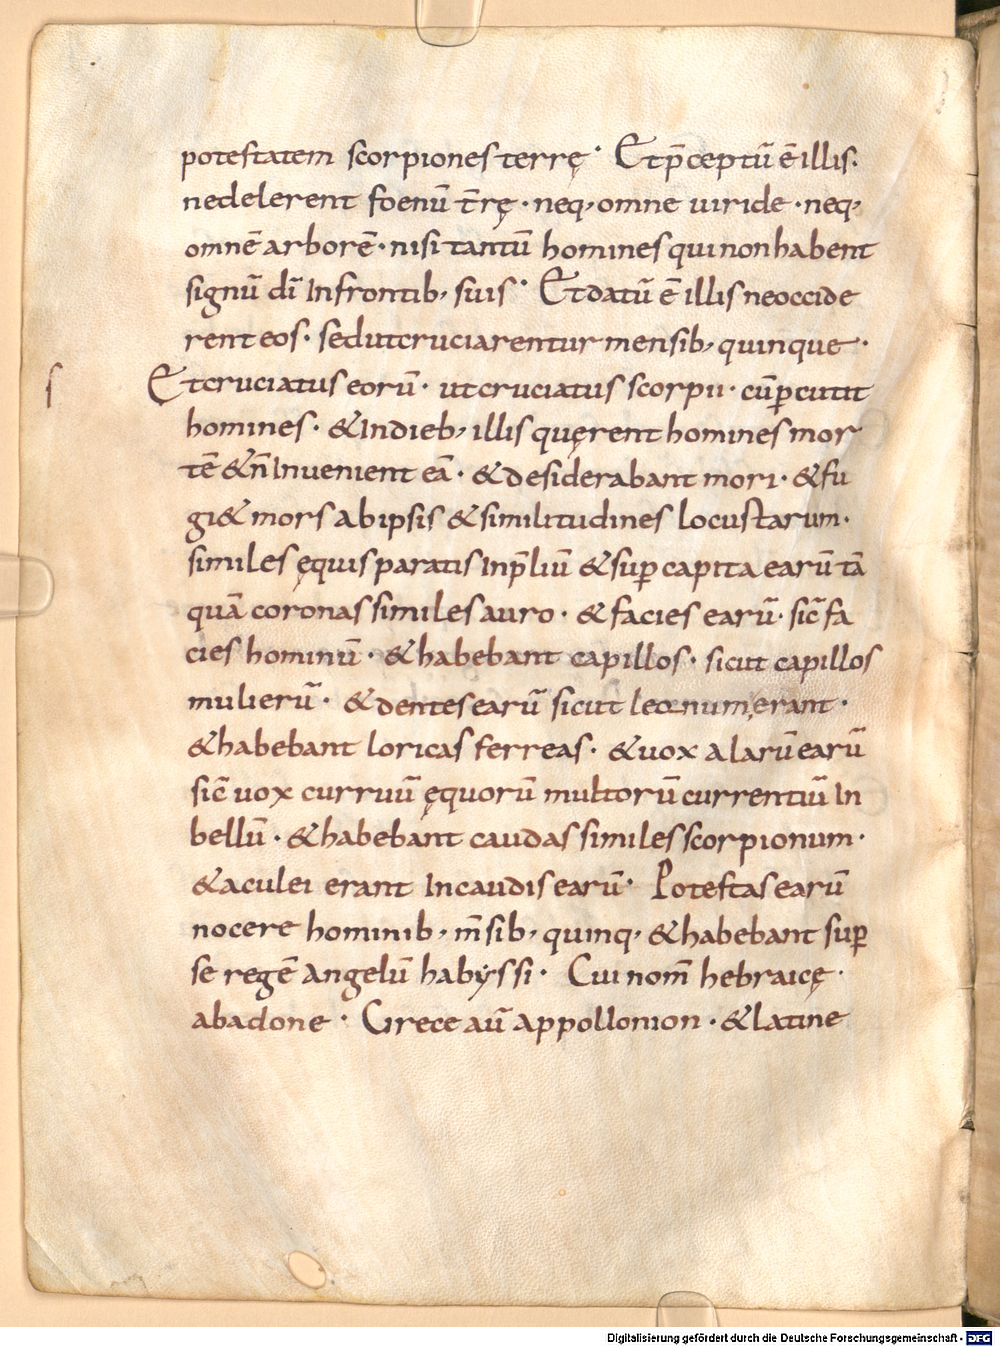 potestatem scorpiones terrę · Et p̄ceptū ē illis·
ne delerent foenū t̄rę · neq, omne uiride · neq,
omnē arborē · nisi tantū homines qui non habent
signū dī In frontib, suis · Et datū ē illis ne occide
rent eos · sed ut cruciarentur mensib, quinque ·
ſ
Et cruciatus eorū · ut cruciatus scorpii · cū p̲cutit
homines · & In dieb, illis quęrent homines mor
tē & n̄ Inuenient eā · & desiderabant mori · & fu
gi& mors ab ipsis & similitudines locustarum ·
similes ęquis paratis In p̄liū & sup̲ capita earū tā
quā coronas similes auro · & facies earū · sic̄ fa
cies hominū · & habebant capillos · sicut capillos
mulierū · & dentes earū sicut leonum erant ·
& habebant loricas ferreas · & uox alarū earū
sic̄ uox curruū ęquorū multorū currentiū In
bellū · & habebant caudas similes scorpionum ·
& aculei erant In caudis earū · Potestas earū
nocere hominib, m̄sib, quinq, & habebant sup̲
se regē Angelū habyssi · Cui nom̄ hebraicę ·
abadone · Grece aū Appollonion · & latine
Digitalisierung gefördert durch die Deutsche Forschungsgemeinschaft - DFG